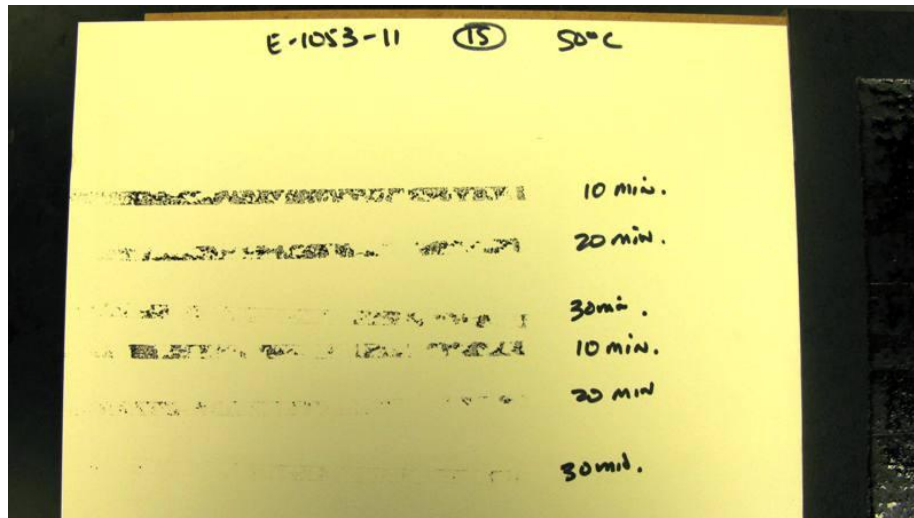 E-1053-11 15 50°C
10 min.
20 min.
30 min.
10 min.
20 min
30 min.